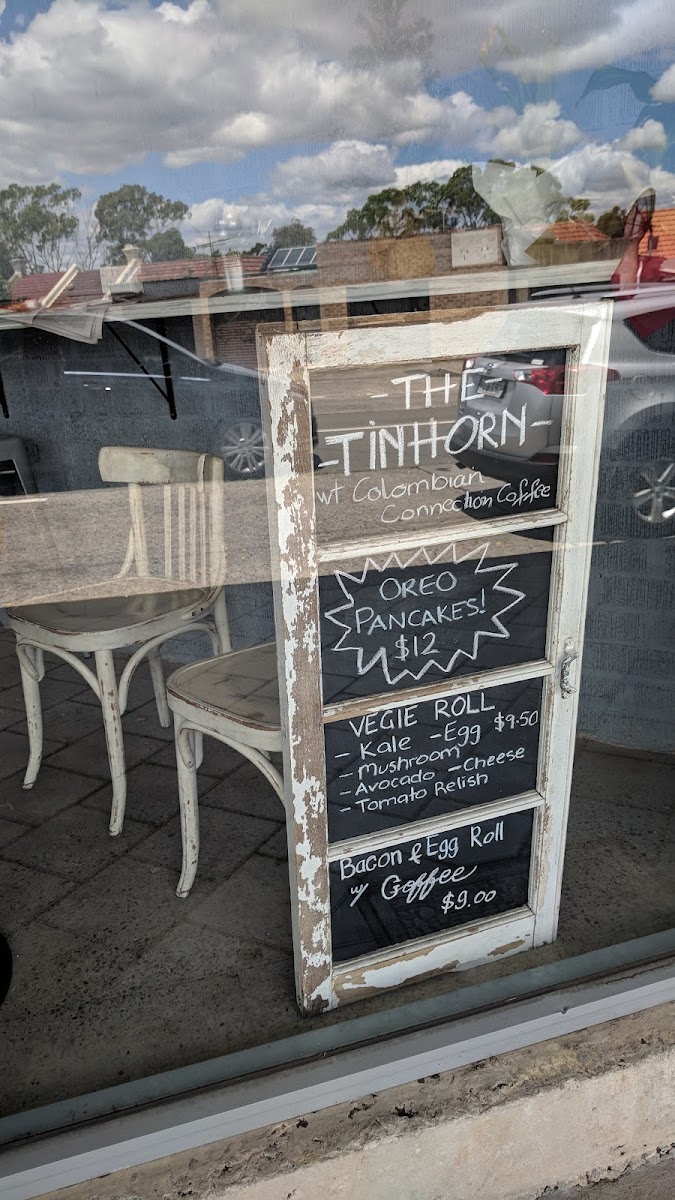 - THE
-TINHORN-
wt Colombian
Connection Coffee
OREO
PANCAKES!
$12
VEGIE ROLL
- Kale -Egg $9.50
- Mushroom
- Avocado -Cheese
- Tomato Relish
Bacon & Egg Roll
w/ Coffee
$9.00